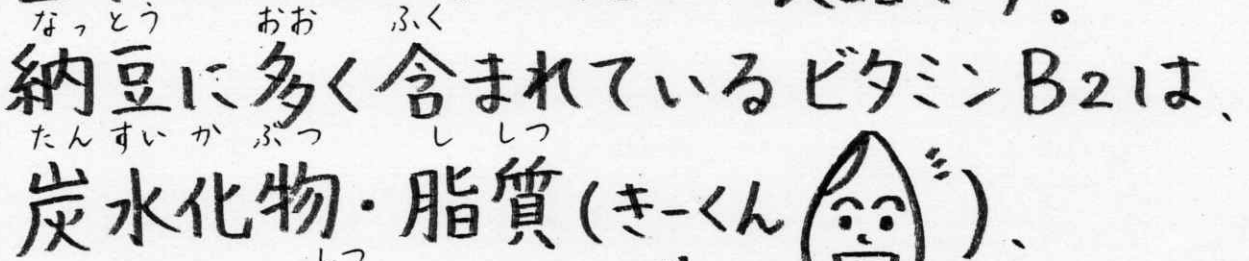 なっとう おお ふく
納豆に多く含まれているビタミンB2は、
たんすいかぶつ ししつ
炭水化物・脂質(きーくん)、